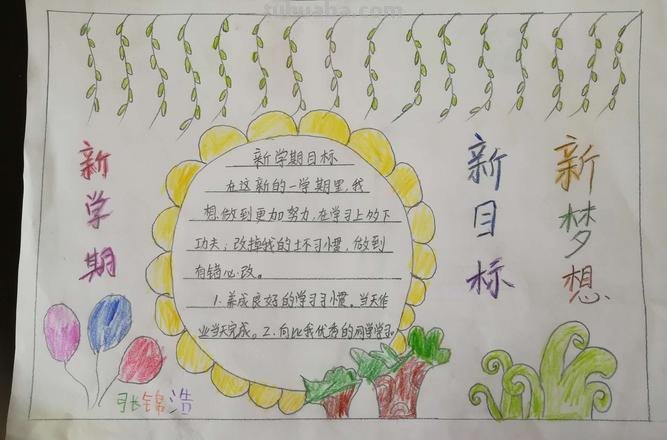 tuhuaba.com
新学期
新学期目标
在这新的一学期里,我
想做到更加努力,在学习上多下
功夫;改掉我的坏习惯,做到
有错必改。
1.养成良好的学习习惯。当天作
业当天完成。2.向比我优秀的同学学习。
新目标
新梦想
张锦浩